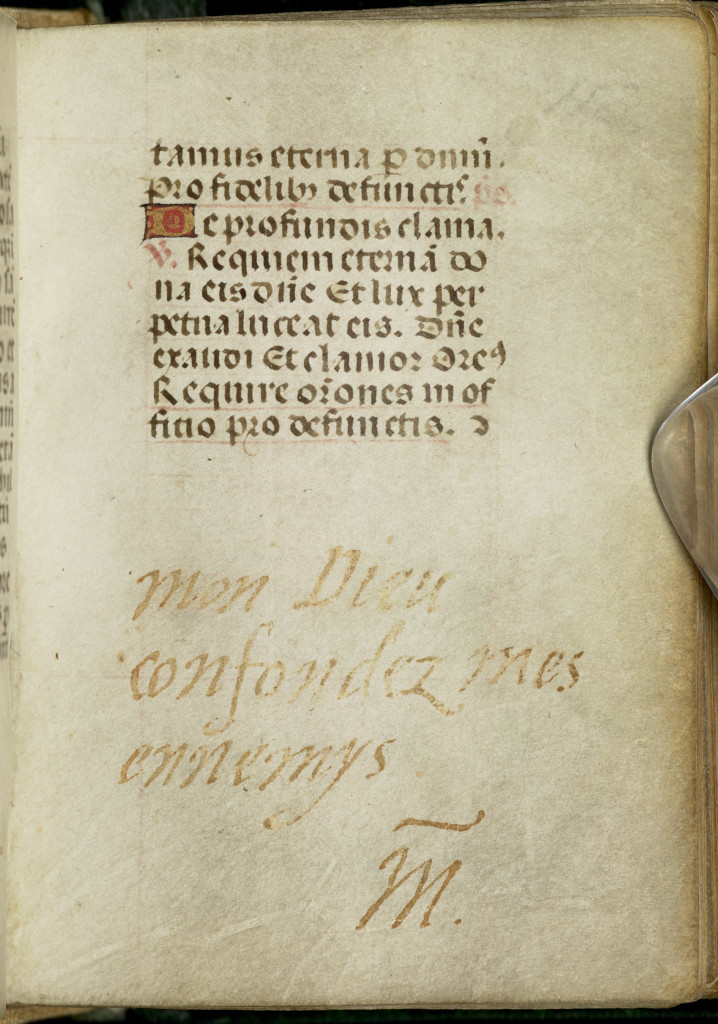 tamus eterna ꝑ dnm̄.
Pro fidelibꝫ defunctis. ps.
De profundis clama.
℣. Requiem eternā do
na eis dn̄e Et lux per
petua luceat eis. Dn̄e
exaudi Et clamor Oreꝰ
Require or̄ones in of
fitio pro defunctis. ↄ
mon Dieu
confondez mes
ennemys
M̄.